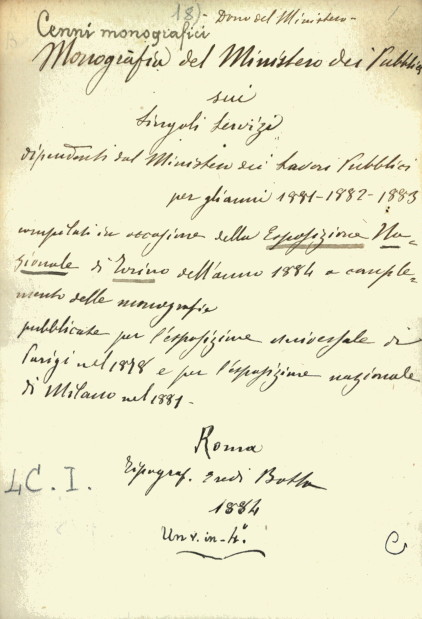 18)- Dono del Ministero-
Cenni monografici
Monografia del Ministero dei Pubblici
sui
singoli servizi
dipendenti dal Ministero dei Lavori Pubblici
per gli anni 1881-1882-1883
compilati in occasione della Esposizione Na-
zionale di Torino dell'anno 1884 a comple-
mento delle monografie
pubblicate per l'esposizione universale di
Parigi nel 1878 e per l'esposizione nazionale
di Milano nel 1881-
Roma
Tipograf. Eredi Botta
1884
Un v. in-4º.
4C. I.
C